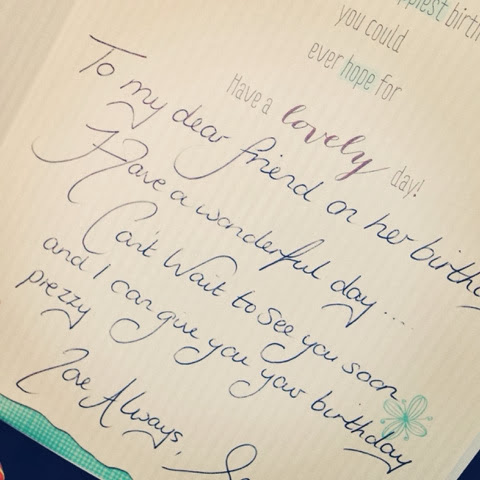 birth
you could
ever hope for
Have a lovely day!
To my dear friend on her birthd
Have a wonderful day....
Can't Wait to see you soon
and I can give you your birthday
prezzy
Love Always,